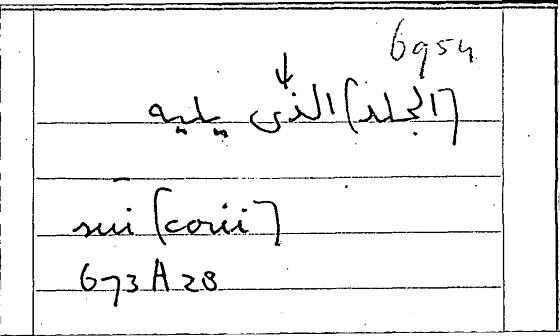 6954
[الجلد] الذى يليه
sui [corii]
673 A 28